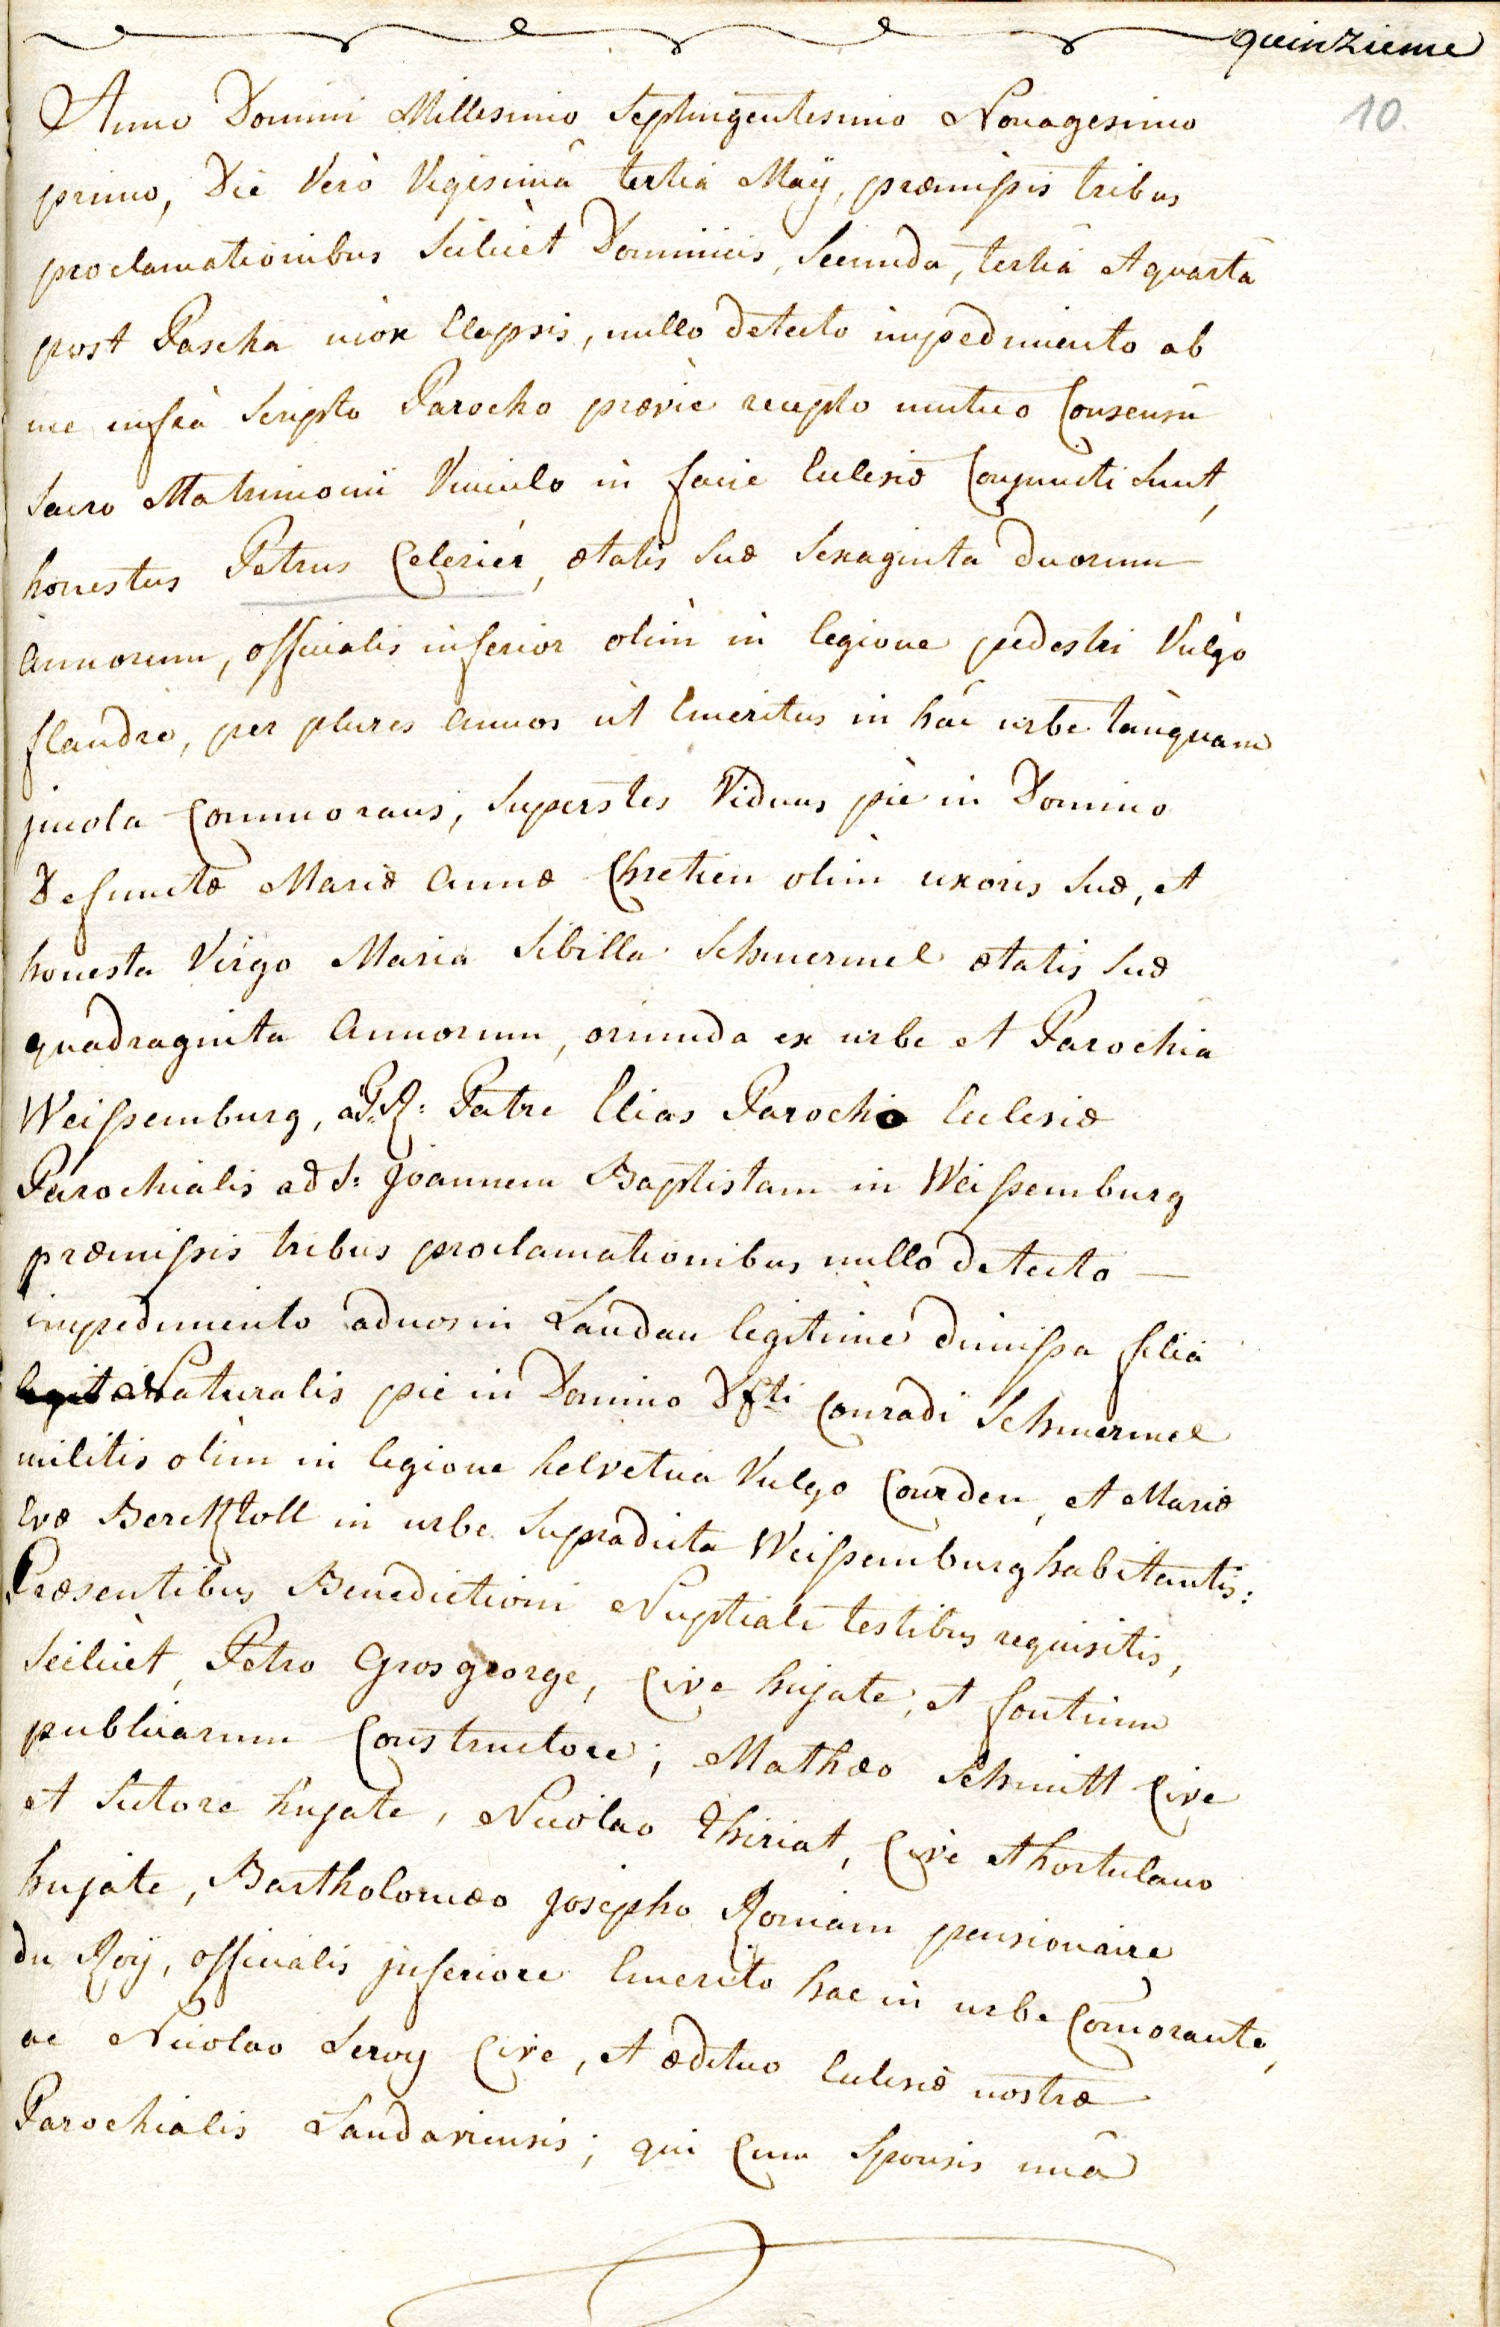 quinzieme
10.
Anno Domini Millesimo Septingentesimo Nonagesimo
primo, Die Verò Vigesimâ tertiâ Maÿ, præmissis tribus
proclamationibus Scilicèt Dominicis, Secunda, tertiâ et quartâ
post Pascha mòx Elapsis, nullo detecto impedimento ab
me infrà Scripto Parocho prævie recepto mutuo Consensû
Sacro Matrimonii Vinculo in facie Ecclesiæ Conjuncti Sunt,
honestus Petrus Celeriér, ætatis Suæ Sexaginta duorum
annorum, officialis inferior olìm in legione pedestri Vulgò
flandre, per plures annos ùt Emeritus in hâc urbe tànquam
jncola Commorans, Superstes Viduus piè in Domino
Defunctæ Mariæ Annæ Chretien olìm uxoris Suæ, et
honesta Virgo Maria Sibilla Schmermel ætatis Suæ
quadraginta Annorum, oriunda ex urbe et Parochiâ
Weissemburg, a P. R: Patre Elias Parocho Ecclesiæ
Parochialis ad S: Joannem Baptistam in Weissemburg
præmissis tribus proclamationibus nullo detecto —
impedimento ad nos in Landau legitime dimissa filia
Naturalis pie in Domino Dfti Conradi Schmermel
militis olìm in legione helvetica Vulgo Courden, et Mariæ
Evæ Berchtoll in urbe Supradicta Weissemburg habitantis:
Præsentibus Benedictioni Nuptiali testibus requisitis,
Scilicèt, Petro Grosgeorge, Cive hujate, et fontium
publicarum Constructore; Mathæo Schmitt Cive
et Sutore hujate, Nicolao Thiriat, Cive et hortulano
hujate, Bartholomæo Josepho Romain pensionaire
du Roÿ, officialis jnferiore Emerito hac in urbe Comorante,
ac Nicolao Leroy Cive, et ædituo Ecclesiæ nostræ
Parochialis Landaviensis; qui Cum Sponsis unâ